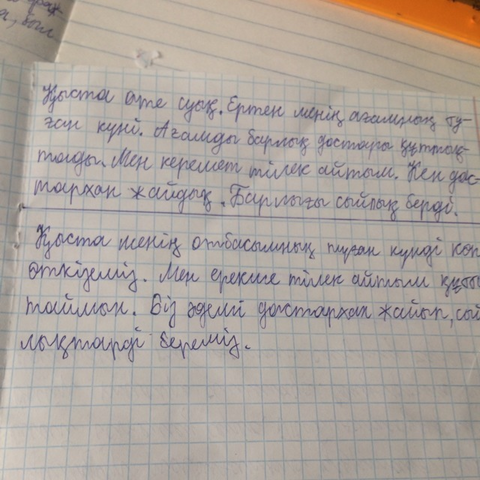 Қыста өте суық. Ертең менің ағамның ту-
ған күні. Ағамды барлық достары құттық-
тайды. Мен керемет тілек айтым. Кең дас-
тархан жайдық. Барлығы сыйлық берді.
Қыста менің отбасымның туған күнді көп
өткіземіз. Мен ерекше тілек айтып құтты
таймын. Біз әдемі дастархан жайып, сый
лықтарді береміз.